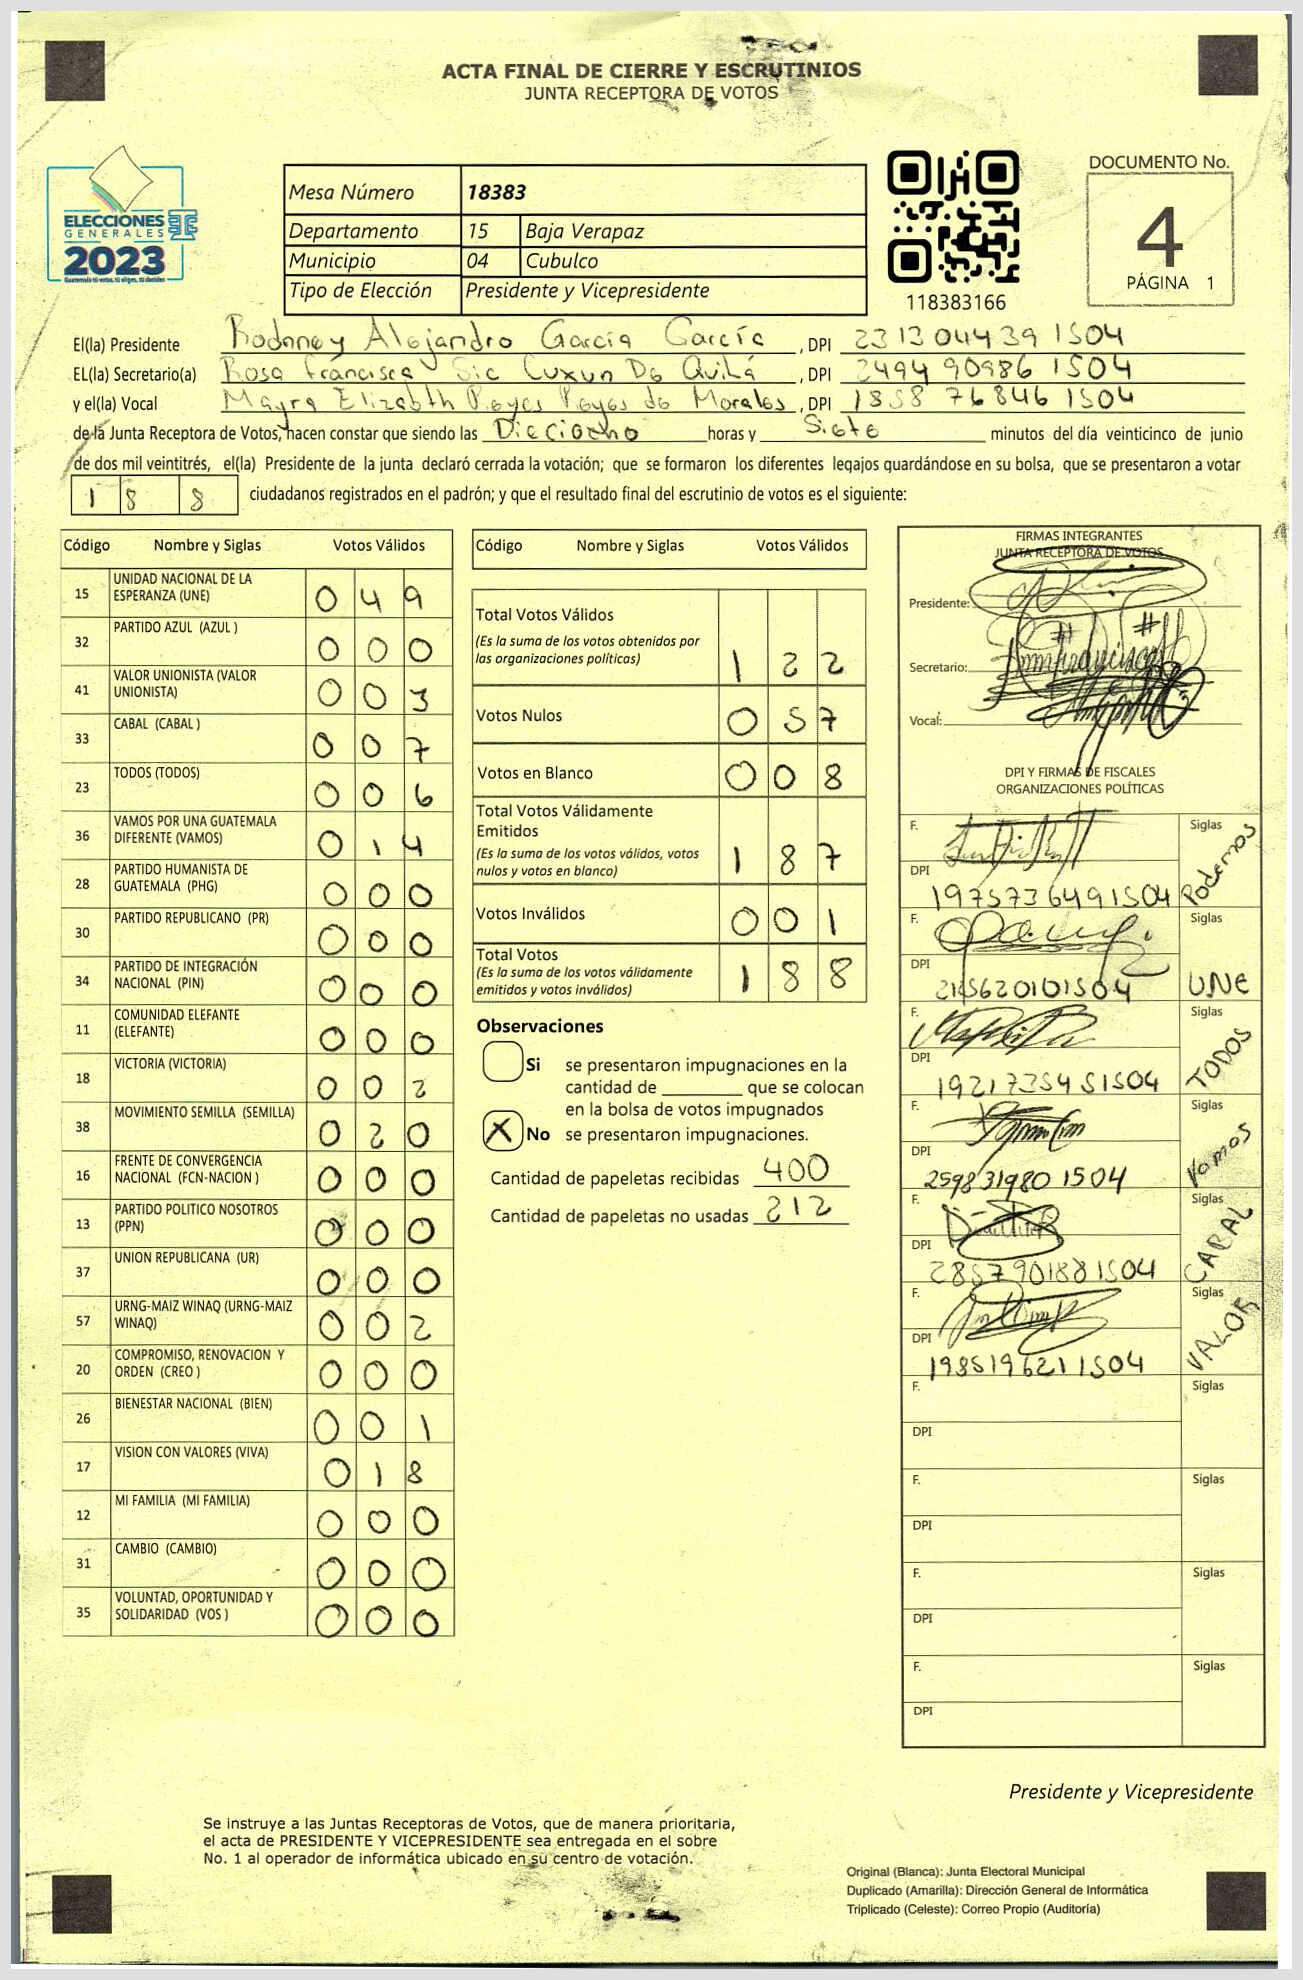 ACTA FINAL DE CIERRE Y ESCRUTINIOS
JUNTA RECEPTORA DE VOTOS
ELECCIONES
GENERALES
2023
Guatemala tú votas, tú eliges, tú decides
Mesa Número 18383
Departamento 15 Baja Verapaz
Municipio 04 Cubulco
Tipo de Elección Presidente y Vicepresidente
118383166
DOCUMENTO No.
4
PÁGINA 1
El(la) Presidente Rodnney Alejandro García García, DPI 231304439 1504
EL(la) Secretario(a) Rosa Francisca Sic Cuxun De Avilá, DPI 2494 90986 1504
y el(la) Vocal Mayra Elizabth Reyes Reyes de Morales, DPI 1858 76846 1504
de la Junta Receptora de Votos, hacen constar que siendo las Dieciocho horas y Siete minutos del día veinticinco de junio
de dos mil veintitrés, el(la) Presidente de la junta declaró cerrada la votación; que se formaron los diferentes legajos guardándose en su bolsa, que se presentaron a votar
1 8 8 ciudadanos registrados en el padrón; y que el resultado final del escrutinio de votos es el siguiente:
Código Nombre y Siglas Votos Válidos
15 UNIDAD NACIONAL DE LA ESPERANZA (UNE) 0 4 9
32 PARTIDO AZUL (AZUL ) 0 0 0
41 VALOR UNIONISTA (VALOR UNIONISTA) 0 0 3
33 CABAL (CABAL ) 0 0 7
23 TODOS (TODOS) 0 0 6
36 VAMOS POR UNA GUATEMALA DIFERENTE (VAMOS) 0 1 4
28 PARTIDO HUMANISTA DE GUATEMALA (PHG) 0 0 0
30 PARTIDO REPUBLICANO (PR) 0 0 0
34 PARTIDO DE INTEGRACIÓN NACIONAL (PIN) 0 0 0
11 COMUNIDAD ELEFANTE (ELEFANTE) 0 0 0
18 VICTORIA (VICTORIA) 0 0 2
38 MOVIMIENTO SEMILLA (SEMILLA) 0 2 0
16 FRENTE DE CONVERGENCIA NACIONAL (FCN-NACION ) 0 0 0
13 PARTIDO POLITICO NOSOTROS (PPN) 0 0 0
37 UNION REPUBLICANA (UR) 0 0 0
57 URNG-MAIZ WINAQ (URNG-MAIZ WINAQ) 0 0 2
20 COMPROMISO, RENOVACION Y ORDEN (CREO ) 0 0 0
26 BIENESTAR NACIONAL (BIEN) 0 0 1
17 VISION CON VALORES (VIVA) 0 1 8
12 MI FAMILIA (MI FAMILIA) 0 0 0
31 CAMBIO (CAMBIO) 0 0 0
35 VOLUNTAD, OPORTUNIDAD Y SOLIDARIDAD (VOS ) 0 0 0
Código Nombre y Siglas Votos Válidos
Total Votos Válidos
(Es la suma de los votos obtenidos por
las organizaciones políticas) 1 2 2
Votos Nulos 0 5 7
Votos en Blanco 0 0 8
Total Votos Válidamente
Emitidos
(Es la suma de los votos válidos, votos
nulos y votos en blanco) 1 8 7
Votos Inválidos 0 0 1
Total Votos
(Es la suma de los votos válidamente
emitidos y votos inválidos) 1 8 8
Observaciones
Si se presentaron impugnaciones en la
cantidad de ________ que se colocan
en la bolsa de votos impugnados
X No se presentaron impugnaciones.
Cantidad de papeletas recibidas 400
Cantidad de papeletas no usadas 212
FIRMAS INTEGRANTES
JUNTA RECEPTORA DE VOTOS
Presidente:
Secretario:
Vocal:
DPI Y FIRMAS DE FISCALES
ORGANIZACIONES POLÍTICAS
F. Siglas Podemos
DPI 1975736491504
F. Siglas UNE
DPI 215620101504
F. Siglas TODOS
DPI 1921735451504
F. Siglas Vamos
DPI 259831980 1504
F. Siglas CABAL
DPI 2857901881504
F. Siglas VALOR
DPI 198519621 1504
F. Siglas
DPI
F. Siglas
DPI
F. Siglas
DPI
F. Siglas
DPI
Presidente y Vicepresidente
Se instruye a las Juntas Receptoras de Votos, que de manera prioritaria,
el acta de PRESIDENTE Y VICEPRESIDENTE sea entregada en el sobre
No. 1 al operador de informática ubicado en su centro de votación.
Original (Blanca): Junta Electoral Municipal
Duplicado (Amarilla): Dirección General de Informática
Triplicado (Celeste): Correo Propio (Auditoría)